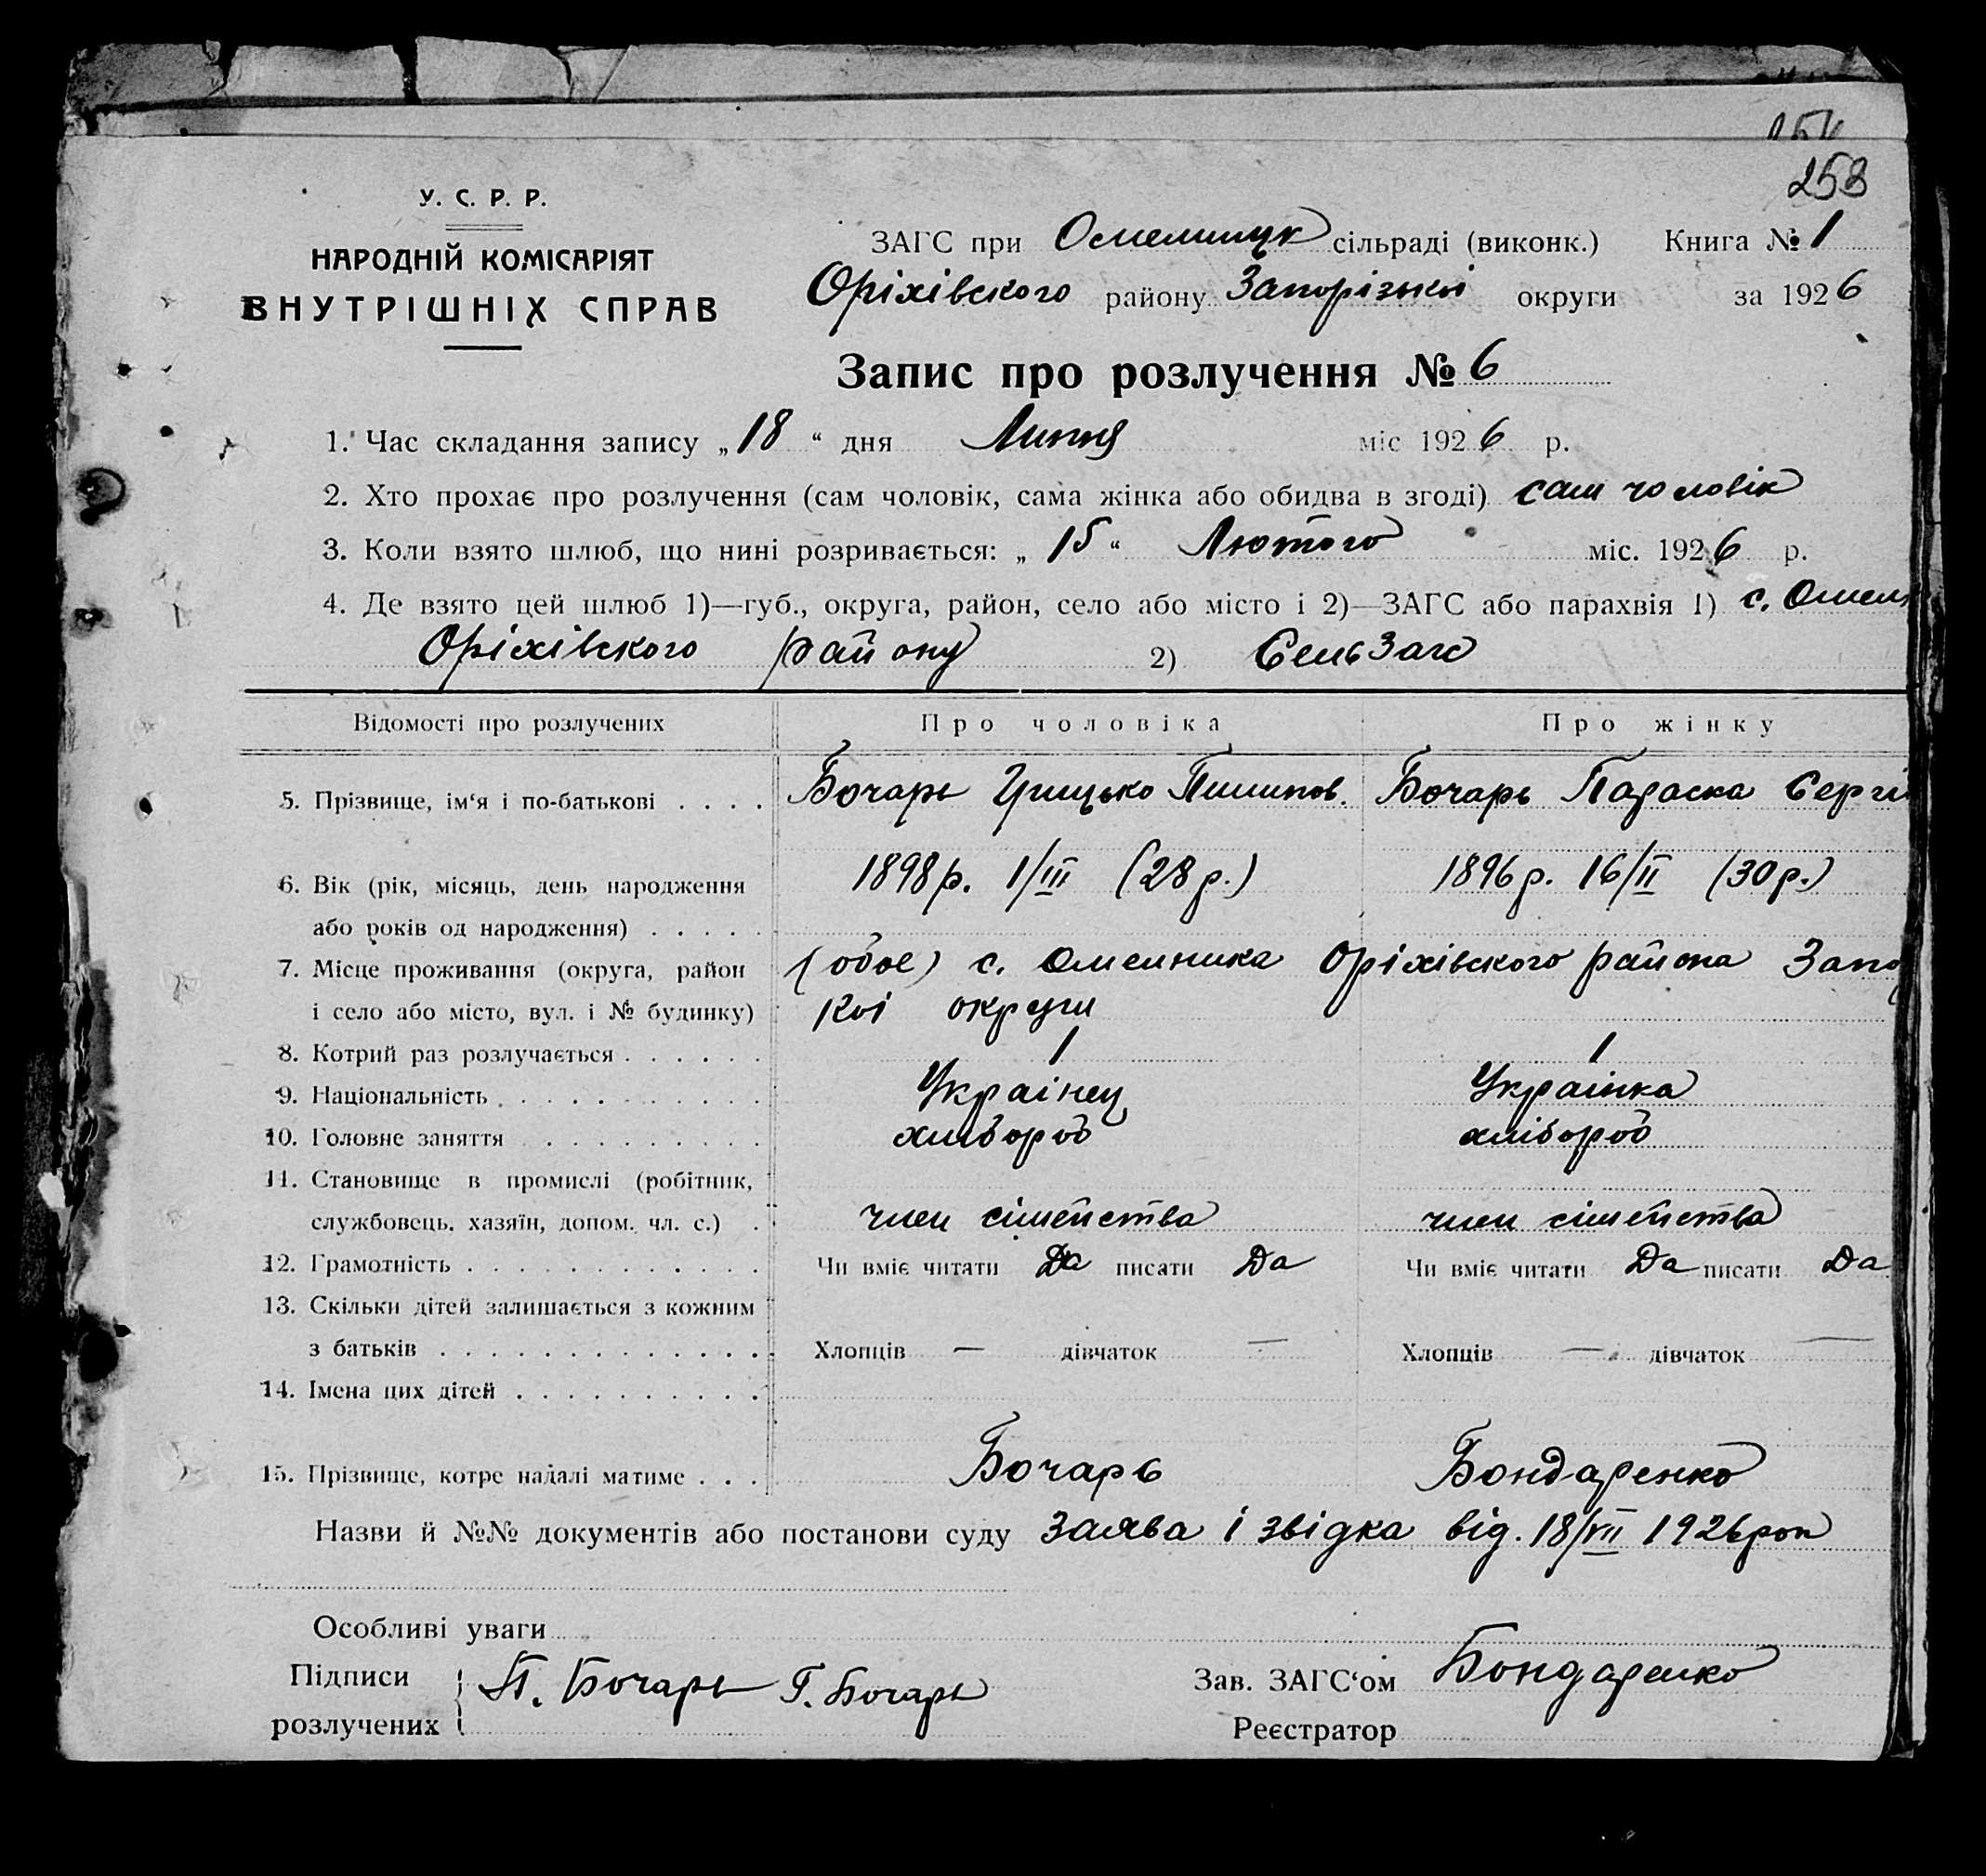 258
У. С. Р. Р.
НАРОДНІЙ КОМІСАРІЯТ
ВНУТРІШНІХ СПРАВ
ЗАГС при Омельницк сільраді (виконк.) Книга № 1
Оріхівского району Запорізькоі округи за 1926
Запис про розлучення № 6
1. Час складання запису „18“ дня Липня міс 1926 р.
2. Хто прохає про розлучення (сам чоловік, сама жінка або обидва в згоді) сам чоловік
3. Коли взято шлюб, що нині розривається: „15“ Лютого міс. 1926 р.
4. Де взято цей шлюб 1)—губ., округа, район, село або місто і 2)—ЗАГС або парахвія 1) с. Омел
Оріхівского району 2) СельЗагс
Відомості про розлучених Про чоловіка Про жінку
5. Прізвище, ім‘я і по-батькові . . . . Бочарь Грицько Пилипов. Бочарь Параска Сергі
6. Вік (рік, місяць, день народження 1898р. 1/III (28р.) 1896р. 16/II (30р.)
або років од народження) . . . . .
7. Місце проживання (округа, район (обоє) с. Омелника Оріхівского района Запо
і село або місто, вул. і № будинку) коі округи
8. Котрий раз розлучається . . . . . . 1 1
9. Національність . . . . . . . . . . . Украінец Украінка
10. Головне заняття . . . . . . . . . . хлібороб хлібороб
11. Становище в промислі (робітник,
службовець, хазяїн, допом. чл. с.) . член сімейства член сімейства
12. Грамотність . . . . . . . . . . . . Чи вміє читати Да писати Да Чи вміє читати Да писати Да
13. Скільки дітей залишається з кожним
з батьків . . . . . . . . . . . . . . Хлопців — дівчаток — Хлопців — дівчаток —
14. Імена цих дітей . . . . . . . . . .
15. Прізвище, котре надалі матиме . . . Бочарь Бондаренко
Назви й №№ документів або постанови суду Заява і звідка від. 18/VII 1926рок
Особливі уваги
Підписи П. Бочарь Г. Бочарь Зав. ЗАГС‘ом Бондаренко
розлучених Реєстратор